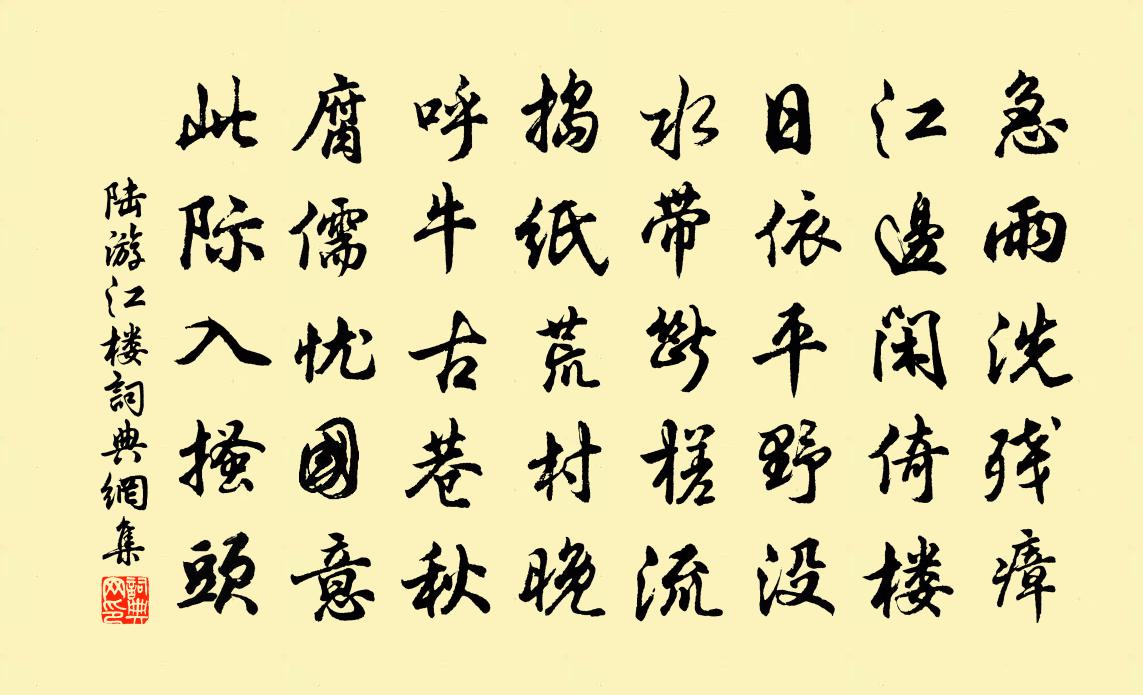 急雨洗残瘴
江邊閑倚楼
日依平野没
水带斷槎流
搗紙荒村晚
呼牛古巷秋
腐儒忧國意
此际入搔頭
陆游江楼詞典網集
詞典网印